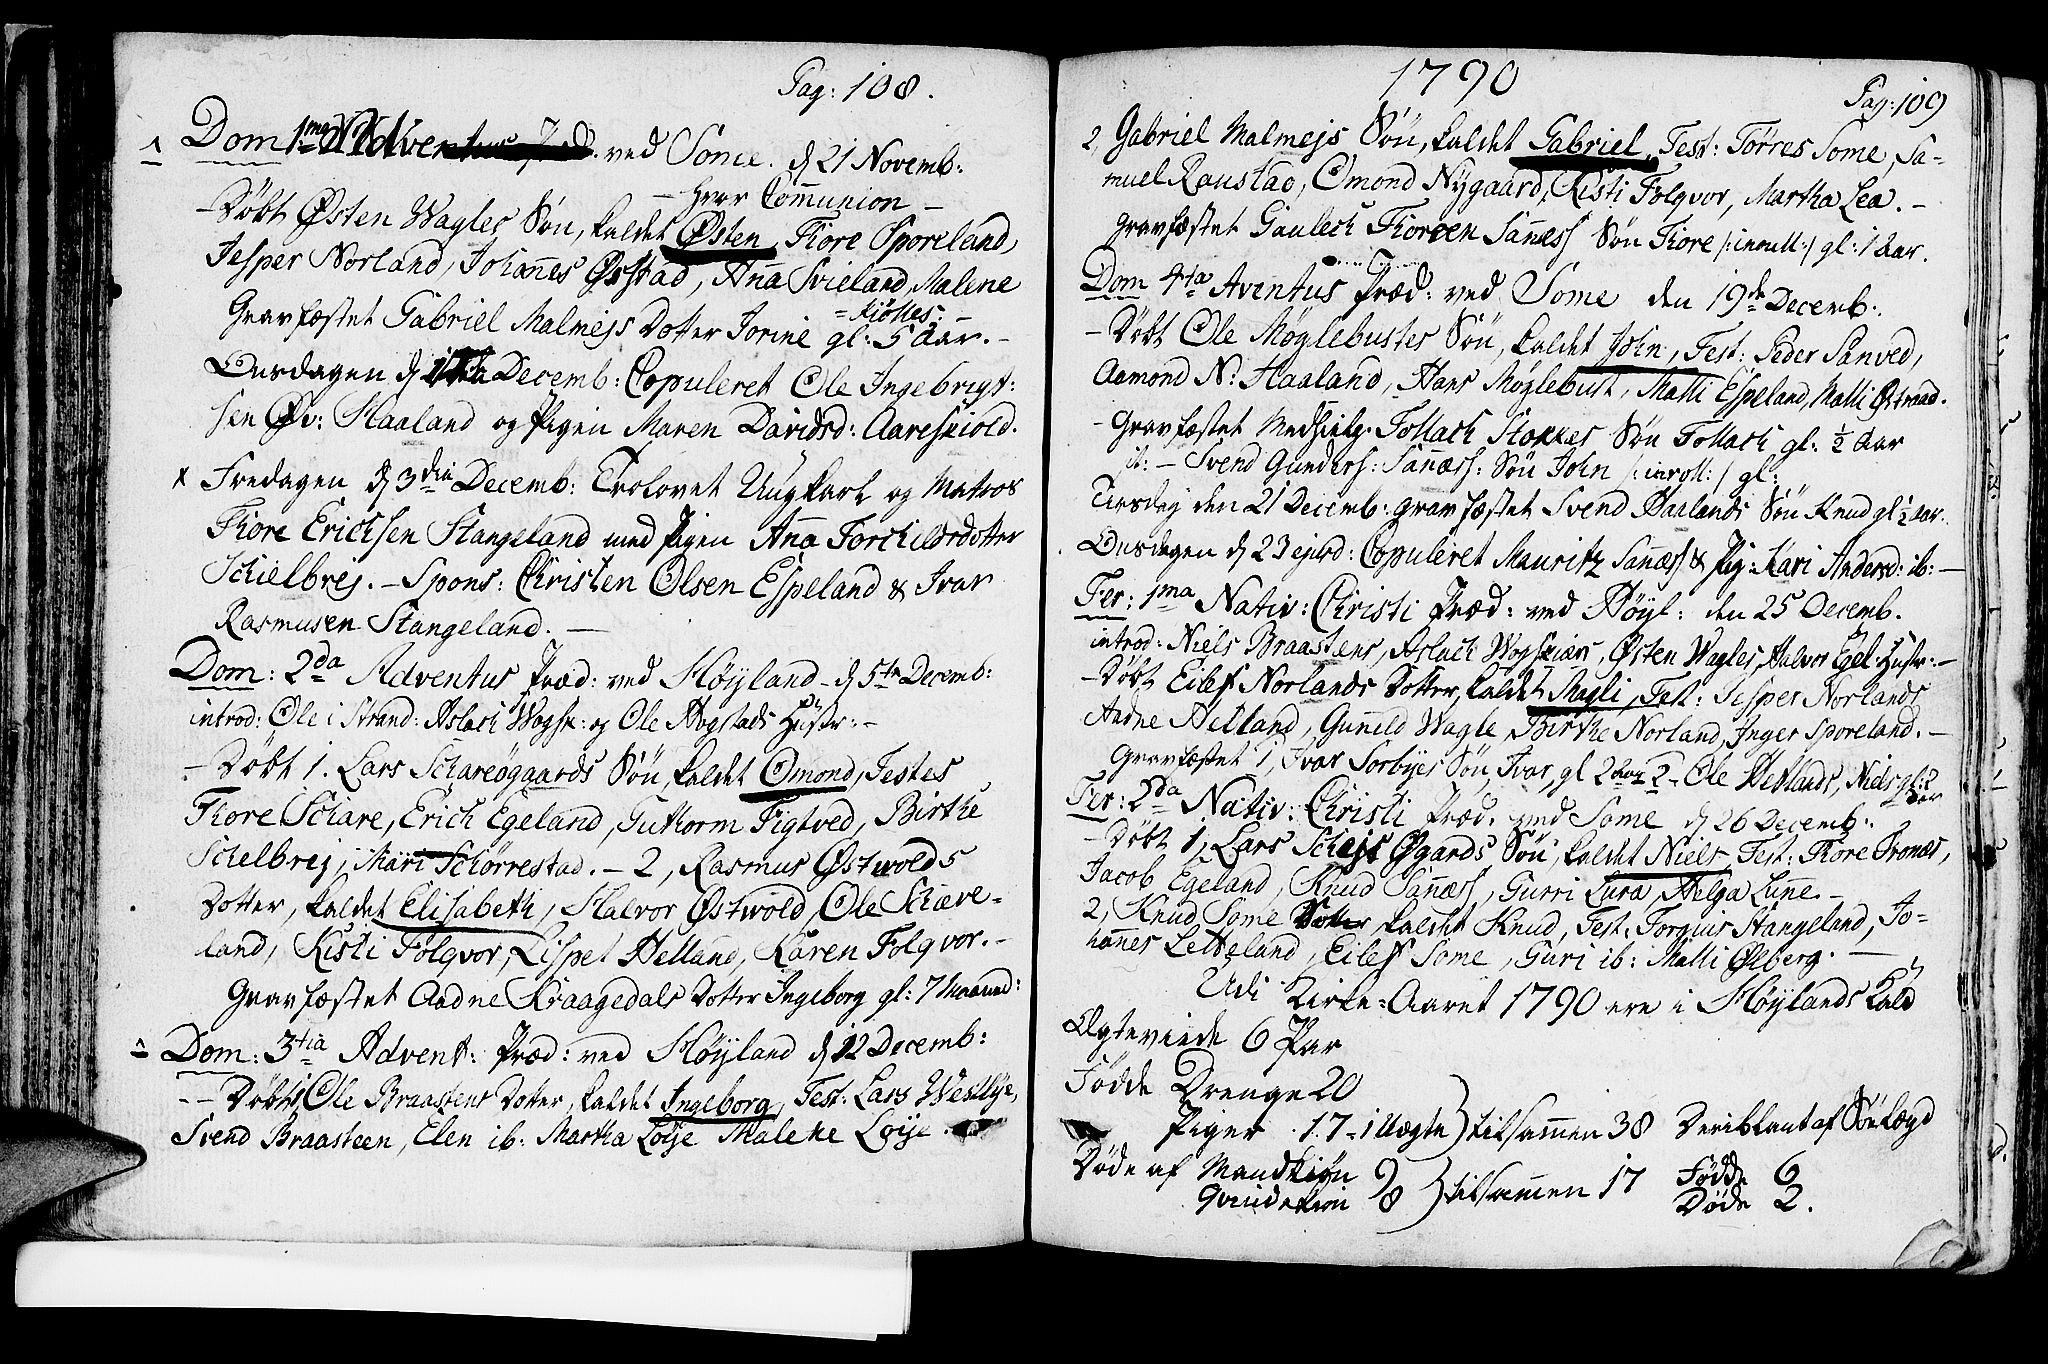 Pag: 108.
Dom 1ma Adventus Præd: ved Some. d 21 Novemb:
- herr Communion -
- Döbt Østen Wagles Søn, kaldet Østen, Tiore Sporeland,
Jesper Norland, Johannes Østad, Anna Svieland, Malene
= Kiölles: -
Gravfæstet Gabriel Malmejs Dotter Jorine gl: 5 Aar. -
Onsdagen d 1 Decemb: Copuleret Ole Ingebrigt:
sen Øv: Haaland og Pigen Maren Davidsd: Aareskiold.
x Fredagen d 3dia Decemb: Trolovet Ungkarl og Matros
Tiore Erichsen Stangeland med Pigen Anna Torchildsdotter
Schielbrej. - Spons: Christen Olsen Espeland & Ivar
Rasmusen Stangeland. -
Dom: 2da Adventus Præd: ved Höyland - d 5te Decemb:
introd: Ole i Strand: Aslach Wogsk: og Ole Hogstads Hustr: -
- Döbt 1. Lars Schareøgaards Søn, kaldet Omond, Testes
Tiore Schare, Erich Egeland, Guttorm Figtved, Birthe
Schelbrej, Mari Schörrestad. - 2, Rasmus Østwolds
Dotter, kaldet Elisabeth, Halvor Østwold, Ole Schieve-
land, Kisti Folqvor, Lispet Helland, Karen Folqvor. -
Gravfæstet Aadne Kraagedals Dotter Ingeborg gl: 7 Maaned:
Dom: 3tia Advent: Præd: ved Höyland d 12 Decemb:
- - Döbt 1 Ole Braastens Dotter, kaldet Ingeborg, Test: Lars Westlye,
Svend Braasteen, Elen ib: Martha Löye Malene Löye.
1790
Pag: 109
2, Gabriel Malmejs Søn, kaldet Gabriel, Test: Törres Some, Sa-
muel Raustad, Omond Nygaard, Kisti Folqvor, Martha Lea. -
Gravfæstet Gaulech Tioreen Sanness Søn Tiore /: inrull :/ gl: 1 Aar.
Dom 4ta Aventus Præd: ved Some den 19de Decemb:
- Döbt Ole Möglebustes Søn, kaldet John, Test: Peder Sanved,
Aamond N: Haaland, Hans Möglebust, Malli Espeland, Malli Østraad.
- Gravfæstet Medhielp. Tollach Stokkes Søn Tollach gl: ½ Aar
it: - Svend Gunders: Sannæss: Søn John /: inroll: / gl:
Tirsdag den 21 Decemb: gravfæstet Svend Haalands Søn Knud gl ½ Aar.
Onsdagen d 23 ejusd: Copuleret Mauritz Sannæss & Pig: Kari Andersd: ib: -
Fer: 1ma Nativ: Christi Præd: ved Höyl: den 25 Decemb.
introd: Niels Braastens, Aslach Wogskiærs, Østen Wagles, Halvor Egel: Hustr: -
- Döbt Eilef Norlands Dotter, kaldet Magli, Test: Jesper Norlands
Aadne Helland, Gunild Wagle, Birthe Norland, Inger Sporeland. -
Gravfæstet 1, Ivar Sorbyes Søn, Ivar, gl 2 Aar 2 - Ole Hetlands, Niels gl: 2
Aar
Fer: 2da Nativ: Christi Præd: ved Some d 26 Decemb:
- Döbt 1, Lars Schejs Øgards Søn, kaldet Niels, Test: Tiore Tronæs,
Jacob Egeland, Knud Sannæss, Gurri Lura, Helga Lunne. -
2, Knud Some Dotter kaldet Knud, Test: Torgius Stangeland, Jo-
hannes Letteland, Eilef Some, Guri ib: Malli Ølberg. -
Udi Kirke-Aaret 1790 ere i Höylands Kald
Ægteviede 6 Par
Födde Drenge 20
Piger 17 - 1 Uægte ) tilsammen 38 Deriblant af Sörlægd
Döde af Mandkiön 9 Födde 6
Qvindekiön 8 ) tilsammen 17 Döde 2.